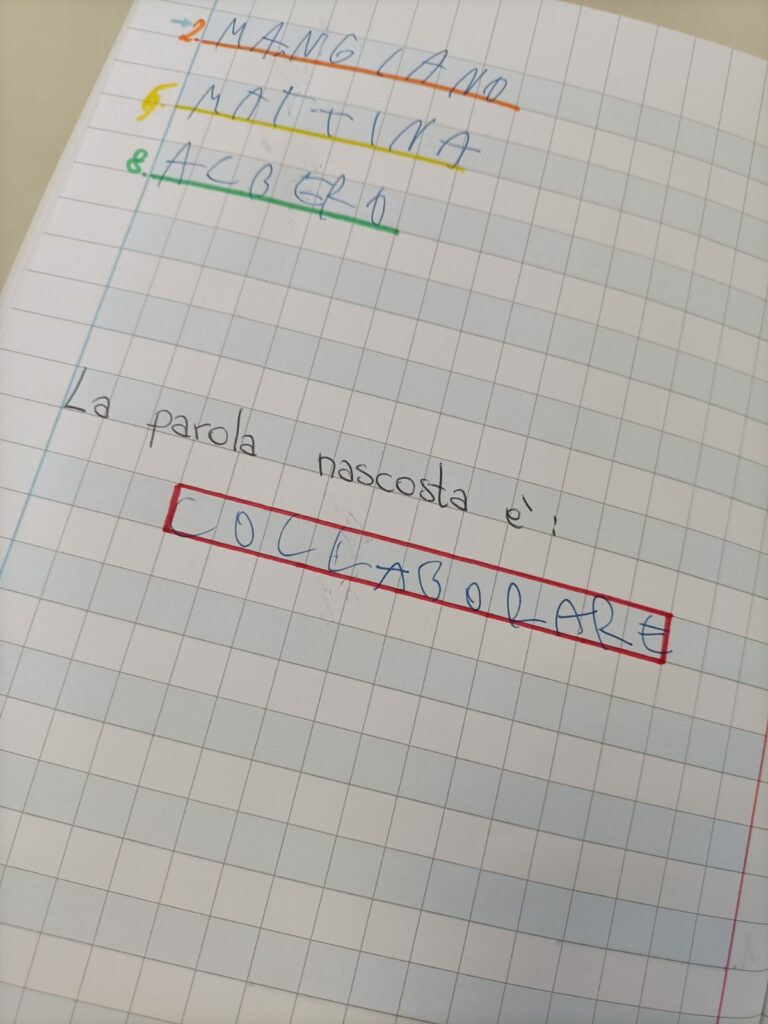 2. MANGIANO
5. MATTINA
8. ALBERO
La parola nascosta è:
COLLABORARE